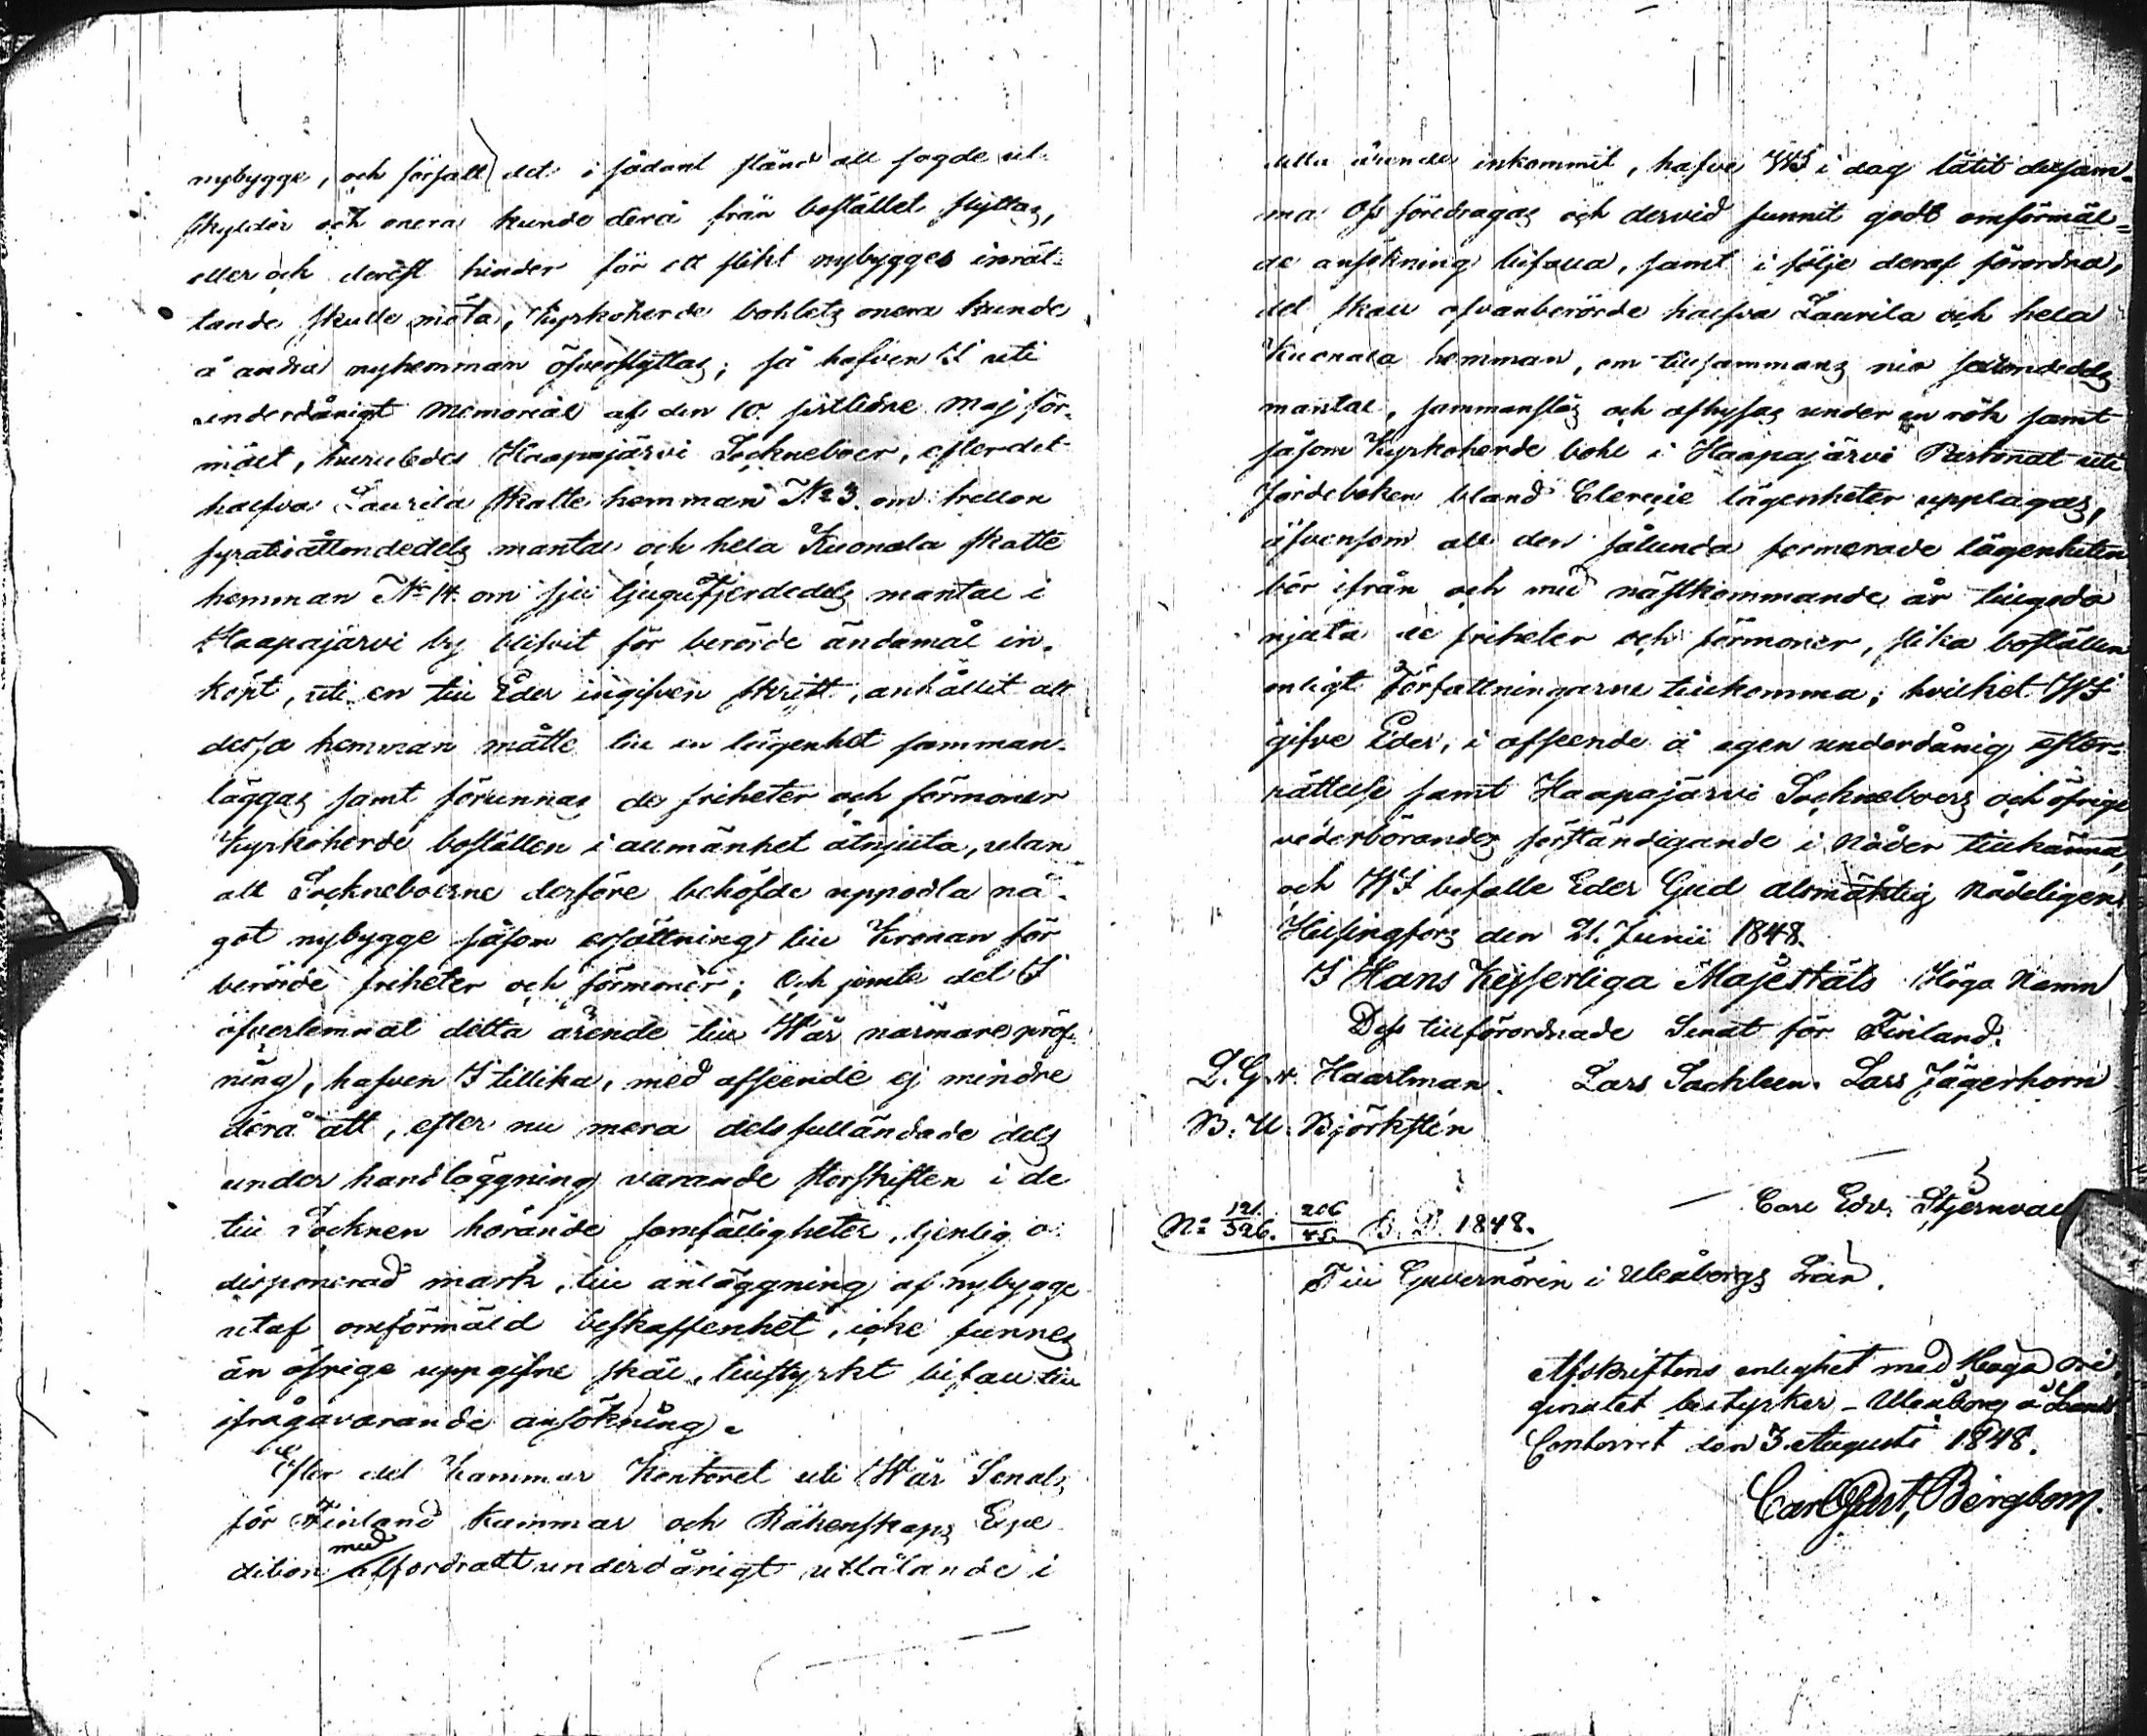 nybygge, och försatt det i sådant stånd att sagde ut-
skylder och onera kunde derå från bostället flyttas,
eller och derest hinder för ett slikt nybygges inrät-
tande skulle möta, Kyrkoherde bohlets onera kunde
å andra nyhemman öfverflyttas; så hafven I uti
underdånigt Memorial af den 10 sistlidne Maj för-
mält, hurusledes Haapajärvi Sockneboer, efter det
halfva Laurila skatte hemman No 3. om tretton
fyratioåttondedels mantal och hela Kuonala skatte
hemman No 14. om sju tjugufjerdedels mantal i
Haapajärvi by blifvit för berörde ändamål in-
köpt, uti en till Eder ingifven skrift, anhållit att
dessa hemman måtte till en lägenhet samman-
läggas samt förunnas de friheter och förmoner
Kyrkoherde boställen i allmänhet åtnjuta, utan
att Socknebоerne derföre behöfde uppodla nå-
got nybygge såsom ersättning till Kronan för
berörde friheter och förmoner; Och jemte det I
öfverlemnat detta ärende till Wår närmare pröf-
ning, hafven I tillika, med afseende ej mindre
derå att, efter nu mera dels fulländade dels
under handläggning varande storskiften i de
till Socknen hörande samfälligheter, tjenlig o-
disponerad mark, till anläggning af nybygge
utaf omförmäld beskaffenhet, icke funnes
än öfrige uppgifne skäl, tillstyrkt bifall till
ifrågavarande ansökning.
Efter det Kammar Kontoret uti Wår Senats
för Finland Kammar och Räkenskaps Expe-
dition med affordradt underdånigt utlåtande i
detta ärende inkommit, hafve WI i dag låtit detsam-
ma Oss föredragas och dervid funnit godt omförmäl-
de ansökning bifalla, samt i följe deraf förordna,
det skall ofvanberörde halfva Laurila och hela
Kuonala hemman, om tillsammans nio sextondedels
mantal, sammanslås och afhysas under en rök samt
såsom Kyrkoherde bohl i Haapajärvi Pastorat uti
Jordeboken bland Clerecie lägenheter upptagas,
äfvensom att den sålunda formerade lägenheten
bör ifrån och med nästkommande år tillgodo
njuta de friheter och förmoner, slika boställen
enligt Författningarne tillkomma; hvilket WI
gifve Eder, i afseende å egen underdånig efter-
rättelse samt Haapajärvi Sockneboers och öfrige
vederbörandes förständigande i Nåder tillkänna,
och WI befalle Eder Gud alsmäktig Nådeligen.
Helsingfors den 21. Junii 1848.
I Hans Kejserliga Majestäts Höga Namn
Dess tillförordnade Senat för Finland.
L. G. v. Haartman. Lars Sackleen. Lars Jägerhorn
B. U. Björkstén
Carl Edv. Stjernvall
No 121/526. 206/45. B. D. 1848.
Till Guvernören i Uleåborgs Län.
Afskriftens enlighet med Höga Ori-
ginalet bestyrker – Uleåborg å Lands
Contoret den 3 Augusti 1848.
Carl Gust. Bergbom.